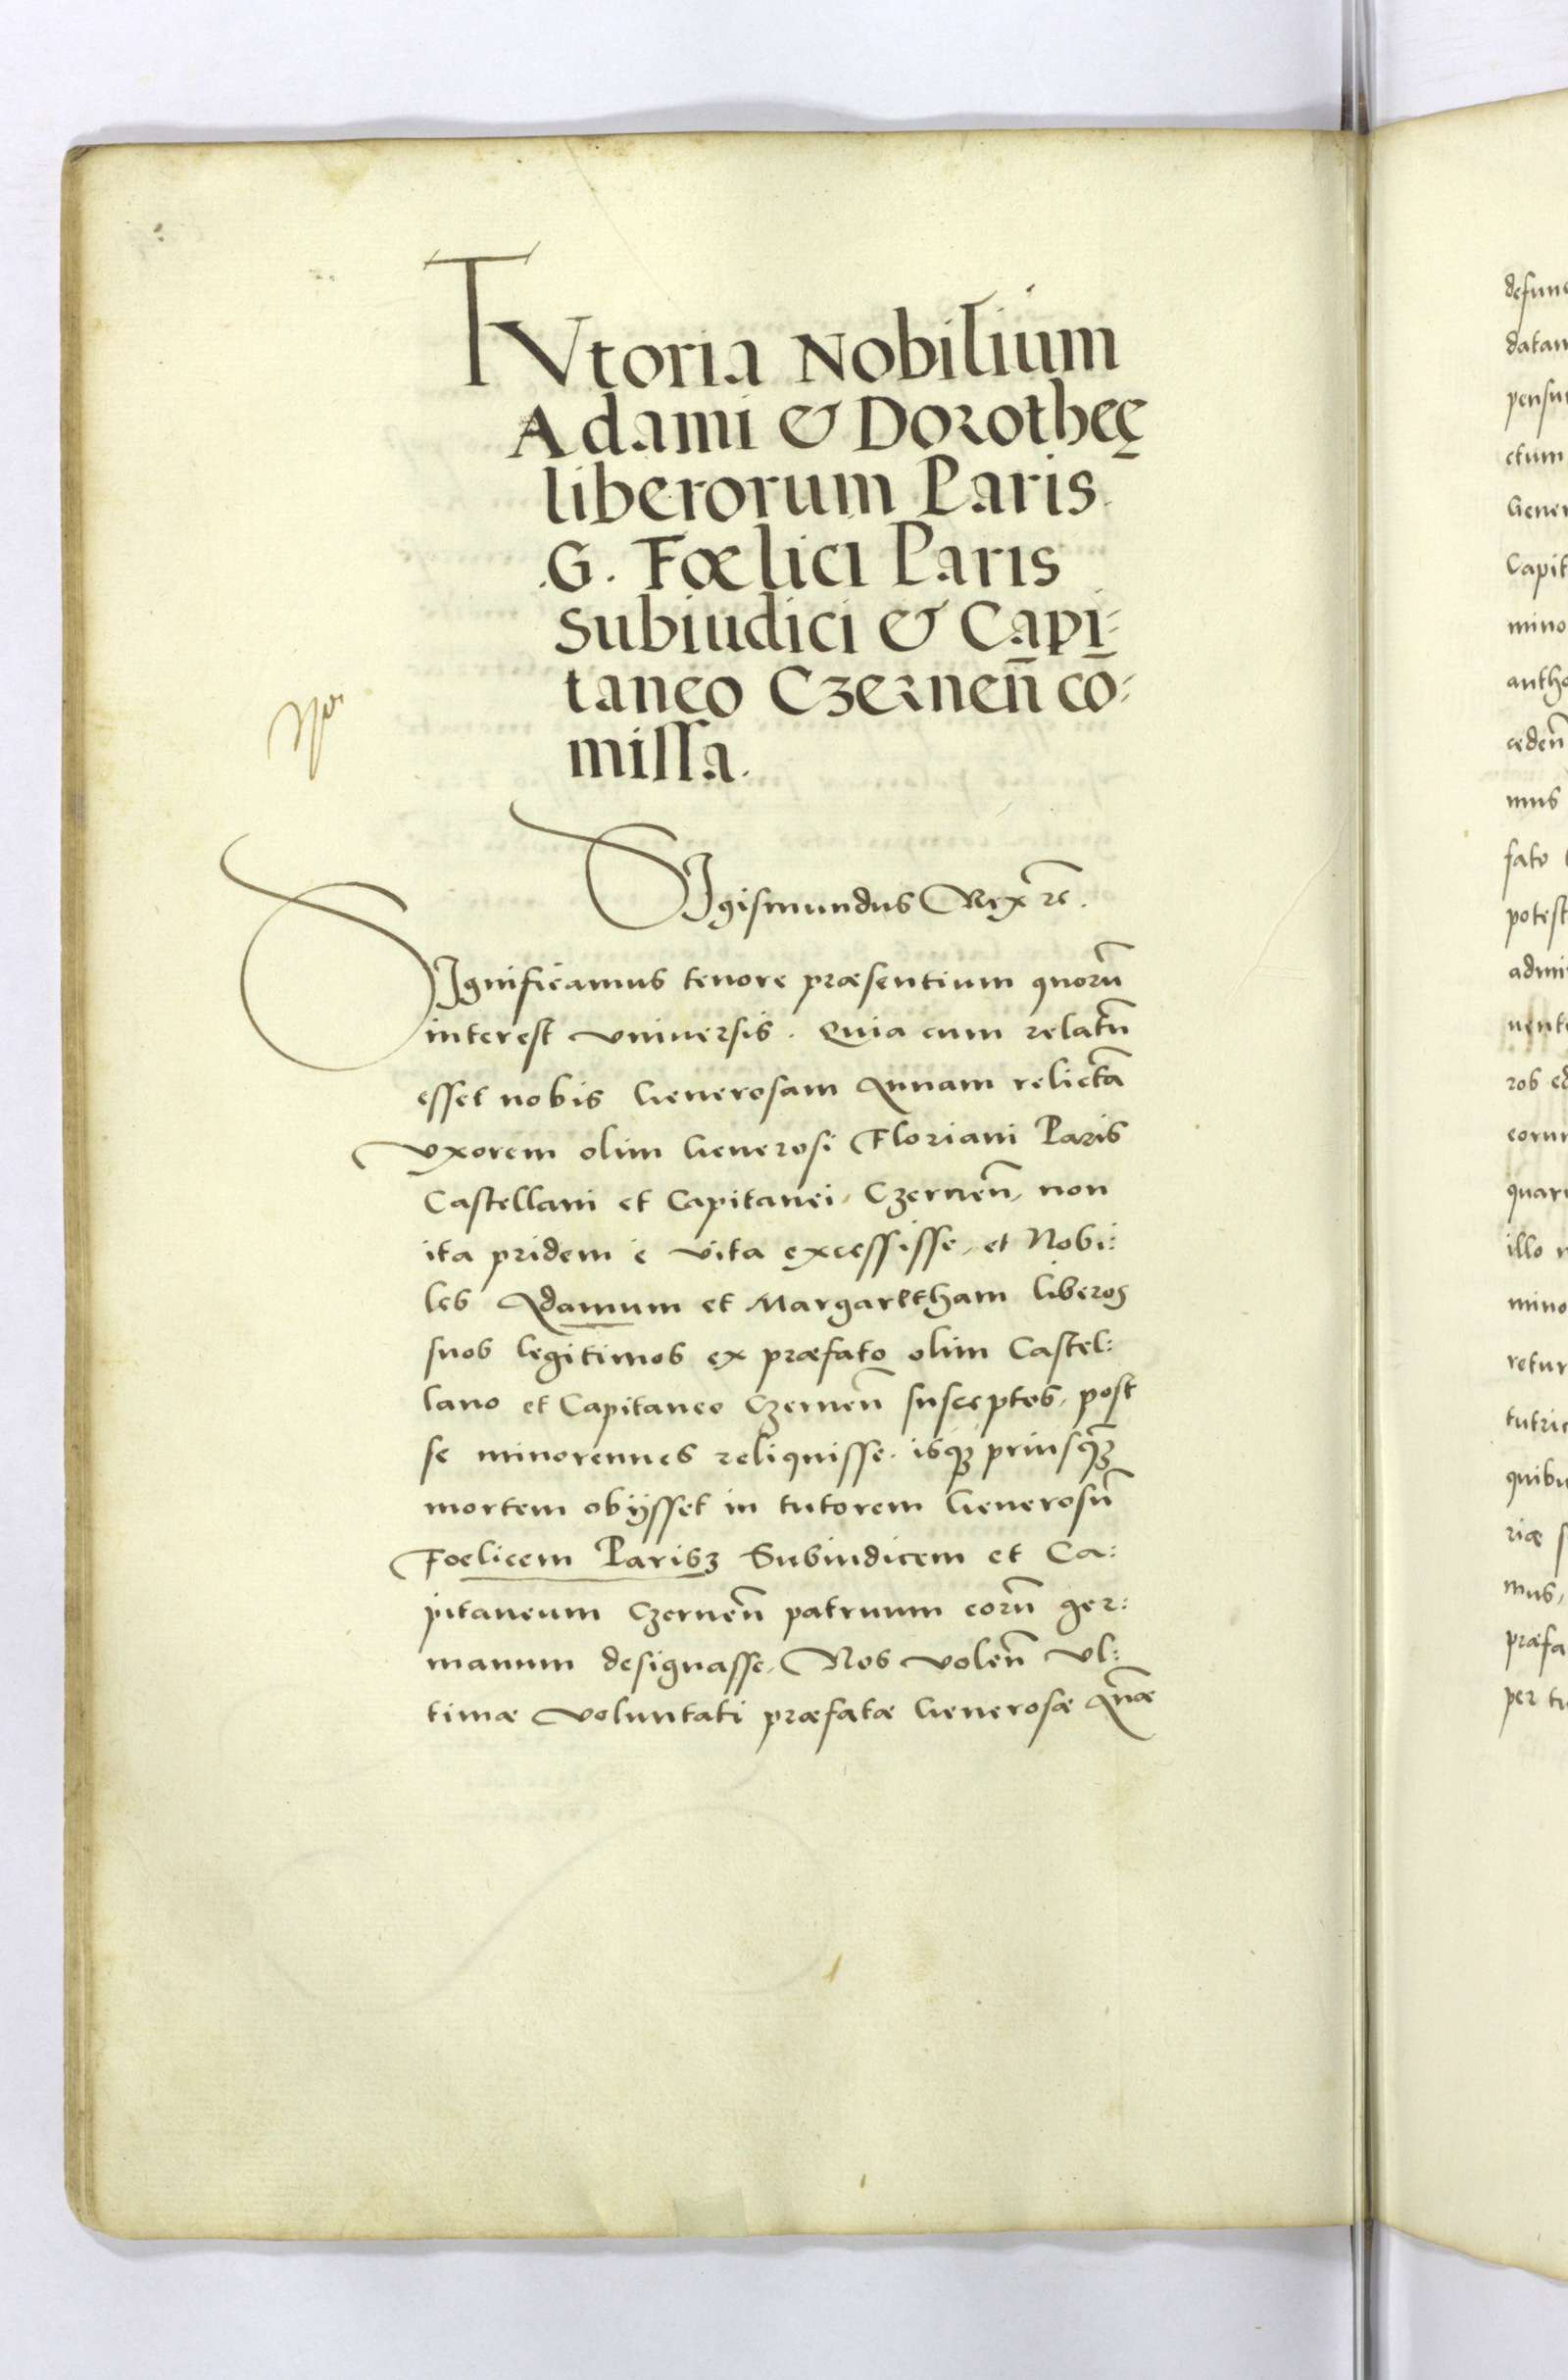 TVtoria Nobilium
Adami & Dorotheę
liberorum Paris.
.G. Fœlici Paris
Subiudici & Capi:
taneo Czernen̄ co:
missa.
SIgismundus Rex rc̄.
SIgnificamus tenore præsentium quorū
interest vniuersis. Quia cum relatū
esset nobis Generosam Annam relictā
vxorem olim Generosi Floriani Paris
Castellani et Capitanei, Czernen̄, non
ita pridem è vita excessisse, et Nobi:
les Adamum et Margaretham liberos
suos legitimos ex præfato olim Castel:
lano et Capitaneo Czernen̄ susceptos, post
se minorennes reliquisse. isq̃ꝫ priusq̃ꝫ
mortem obijsset in tutorem Generosū
Foelicem Parisz Subiudicem et Ca:
pitaneum Czernen̄ patruum eorū ger:
manum designasse, Nos volen̄ vl:
timæ voluntati præfatæ Generosæ An̄æ
defun
datam
ctum
Gener
Capit
mino
antho
ceden̄
mus
fato
potest
admi
quar
illo
mino
retur
tutric
quibu
riæ
mus,
præfa
per tu